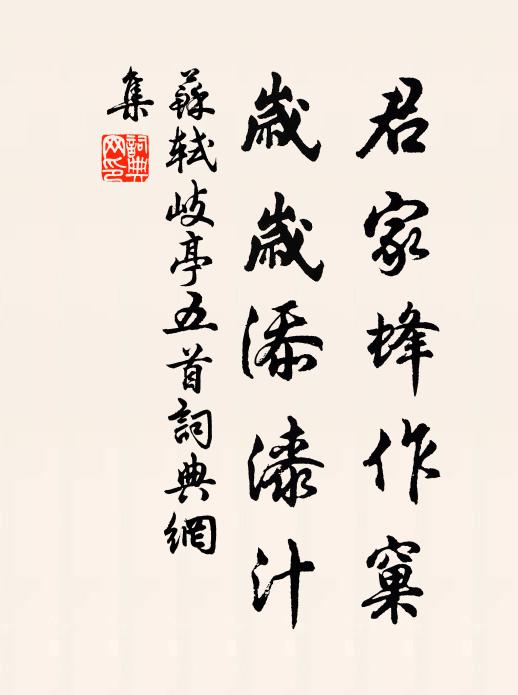 君家蜂作窠
歲歲添漆汁
蘇軾岐亭五首詞典網
集
詞典
网印